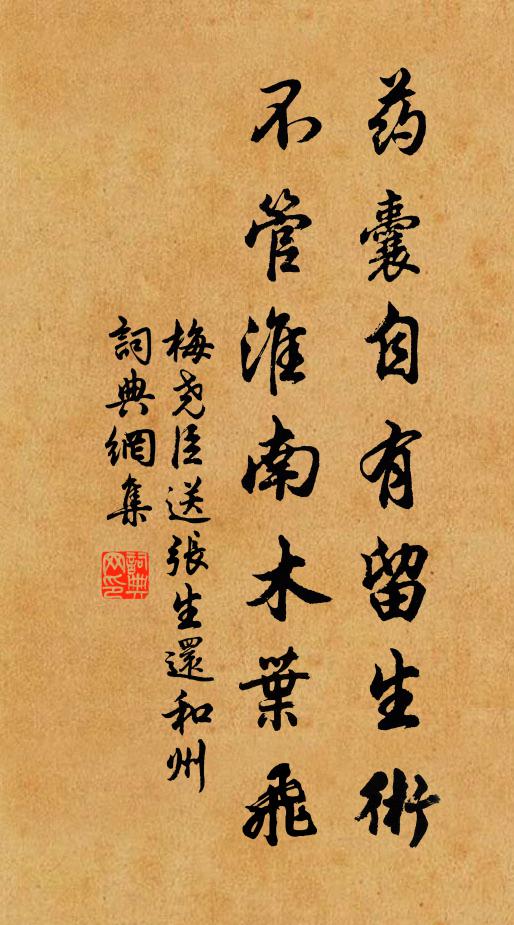 药囊自有留生術
不管淮南木葉飛
梅尧臣送張生還和州
詞典網集
詞典网印